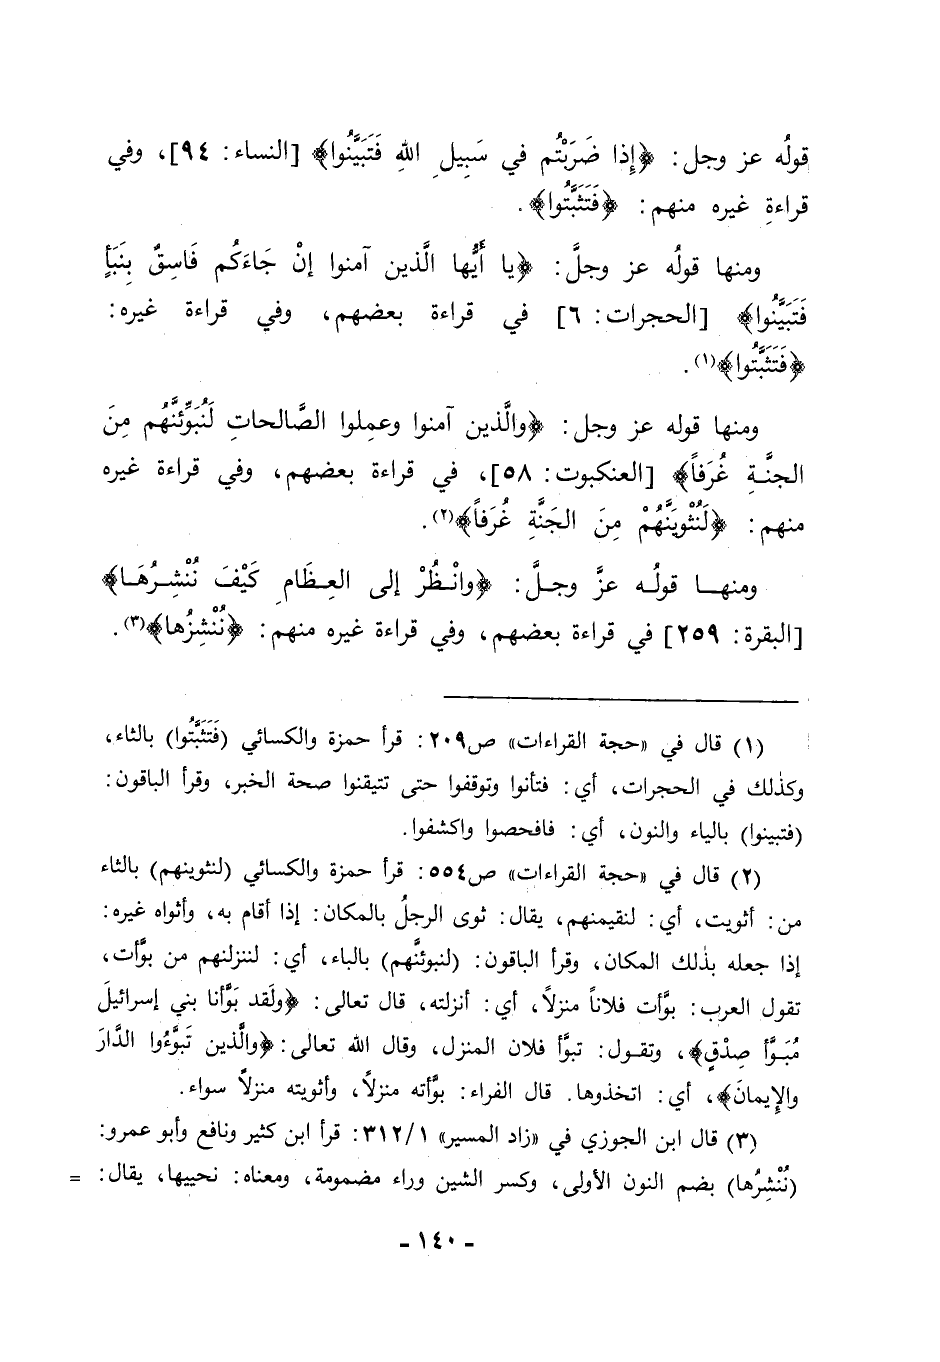 قولُه عز وجل: ﴿إِذا ضَرَبْتُم في سَبِيلِ اللهِ فَتَبَيَّنُوا﴾ [النساء: ٩٤]، وفي
قراءةِ غيره منهم: ﴿فَتَثَبَّتُوا﴾.
ومنها قولُه عز وجلَّ: ﴿يا أَيُّها الَّذين آمنوا إنْ جَاءَكُم فَاسِقٌ بِنَبَأٍ
فَتَبَيَّنُوا﴾ [الحجرات: ٦] في قراءة بعضهم، وفي قراءة غيره:
﴿فَتَثَبَّتُوا﴾(١).
ومنها قوله عز وجل: ﴿والَّذين آمنوا وعمِلوا الصَّالحاتِ لَنُبَوِّئَنَّهُم مِنَ
الجنَّةِ غُرَفاً﴾ [العنكبوت: ٥٨]، في قراءة بعضهم، وفي قراءة غيره
منهم: ﴿لَنُثْوِيَنَّهُمْ مِنَ الجَنَّةِ غُرَفاً﴾(٢).
ومنها قولُه عزَّ وجلَّ: ﴿وانْظُرْ إلى العِظَامِ كَيْفَ نُنْشِرُهَا﴾
[البقرة: ٢٥٩] في قراءة بعضهم، وفي قراءة غيره منهم: ﴿نُنْشِزُها﴾(٣).
(١) قال في «حجة القراءات» ص٢٠٩: قرأ حمزة والكسائي (فَتَثَبَّتُوا) بالثاء،
وكذلك في الحجرات، أي: فتأنوا وتوقفوا حتى تتيقنوا صحة الخبر، وقرأ الباقون:
(فتبينوا) بالياء والنون، أي: فافحصوا واكشفوا.
(٢) قال في «حجة القراءات» ص٥٥٤: قرأ حمزة والكسائي (لنثوينهم) بالثاء
من: أثويت، أي: لنقيمنهم، يقال: ثوى الرجلُ بالمكان: إذا أقام به، وأثواه غيره:
إذا جعله بذلك المكان، وقرأ الباقون: (لنبوئنَّهم) بالباء، أي: لننزلنهم من بوَّأت،
تقول العرب: بوَّأت فلاناً منزلاً، أي: أنزلته، قال تعالى: ﴿ولَقد بَوَّأنا بني إسرائيلَ
مُبَوَّأ صِدْقٍ﴾، وتقول: تبوَّأ فلان المنزل، وقال الله تعالى: ﴿والَّذين تَبوَّءُوا الدَّارَ
والإيمانَ﴾، أي: اتخذوها. قال الفراء: بوَّأته منزلاً، وأثويته منزلاً سواء.
(٣) قال ابن الجوزي في «زاد المسير» ٣١٢/١: قرأ ابن كثير ونافع وأبو عمرو:
(نُنْشِرُها) بضم النون الأولى، وكسر الشين وراء مضمومة، ومعناه: نحييها، يقال: =
- ١٤٠ -